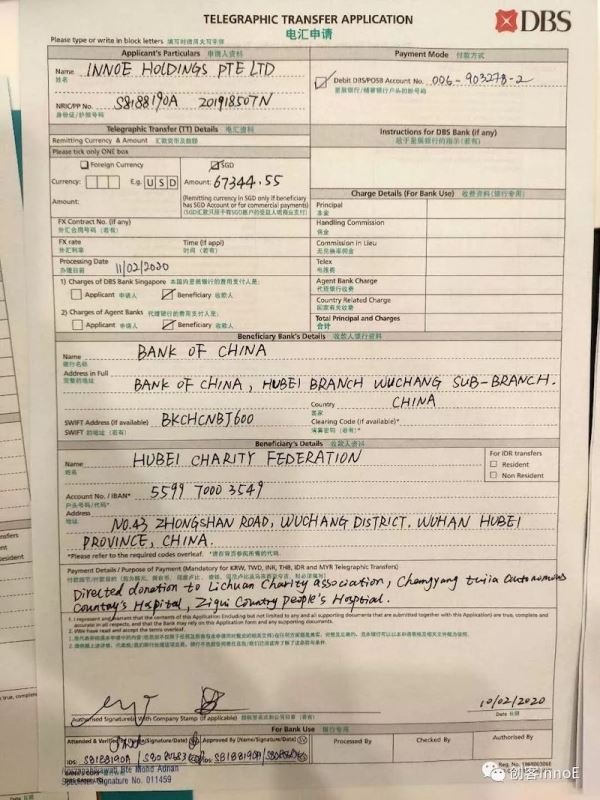 TELEGRAPHIC TRANSFER APPLICATION
电汇申请
DBS
Please type or write in block letters 填写时请用大写字体
Applicant's Particulars 申请人资料
Payment Mode 付款方式
Name INNOE HOLDINGS PTE LTD
姓名
Debit DBS/POSB Account No. 006-903278-2
NRIC/PP No. S8188190A 201918507N
身份证/护照号码
Telegraphic Transfer (TT) Details 电汇资料
Instructions for DBS Bank (if any)
Remitting Currency & Amount 汇款货币及数额
Please tick only ONE box
Foreign Currency SGD
Currency: E.g. USD Amount: 67344.55
Amount:
(Remitting currency in SGD only if beneficiary
has SGD Account or for commercial payments)
Charge Details (For Bank Use) 收费资料(银行专用)
Principal
本金
FX Contract No. (if any)
外汇合同号码 (若有)
Handling Commission
佣金
FX rate Time (if appl)
外汇利率 时间 (若有)
Commission in Lieu
无兑换率佣金
Processing Date 11/02/2020
办理日期
Telex
电报费
1) Charges of DBS Bank Singapore
Applicant 申请人 Beneficiary 收款人
Agent Bank Charge
代理银行收费
2) Charges of Agent Banks 代理银行的费用支付人是:
Applicant 申请人 Beneficiary 收款人
Country Related Charge
国家有关收费
Total Principal and Charges
合计
Beneficiary Bank's Details 收款人银行资料
Name BANK OF CHINA
银行名称
Address in Full
完整的地址
BANK OF CHINA, HUBEI BRANCH WUCHANG SUB-BRANCH.
Country CHINA
国家
SWIFT Address (if available) BKCHCNBJ600
SWIFT 的地址 (若有)
Clearing Code (if available)*
清算密码 (若有)*
Beneficiary's Details 收款人资料
Name HUBEI CHARITY FEDERATION
姓名
For IDR transfers
Resident
Non Resident
Account No. / IBAN* 5599 7000 3549
户头号码/代码*
Address
地址
NO.43 ZHONGSHAN ROAD, WUCHANG DISTRICT. WUHAN HUBEI
PROVINCE, CHINA.
*Please refer to the required codes overleaf.
Payment Details / Purpose of Payment (Mandatory for KRW, TWD, INR, THB, IDR and MYR Telegraphic Transfers)
Directed donation to Lichuan Charity association, Changyang tujia autonomous
Country's Hospital, Zigui Country People's Hosptial.
1. I represent and warrant that the contents of this Application (including but not limited to any and all supporting documents that are submitted together with this Application) are true, complete
and accurate in all respects, and that the Bank may rely on this Application form and any supporting documents.
2. I/We have read and accept the terms overleaf.
10/02/2020
Authorised Signature(s) With Company Stamp (if applicable)
Date 日期
For Bank Use 银行专用
Attended & Verified
Approved By (Name/Signature/Date)
Processed By
Checked By
Authorised By
Mohd Adnan
Specimen Signature No. 011459
创客InnoE